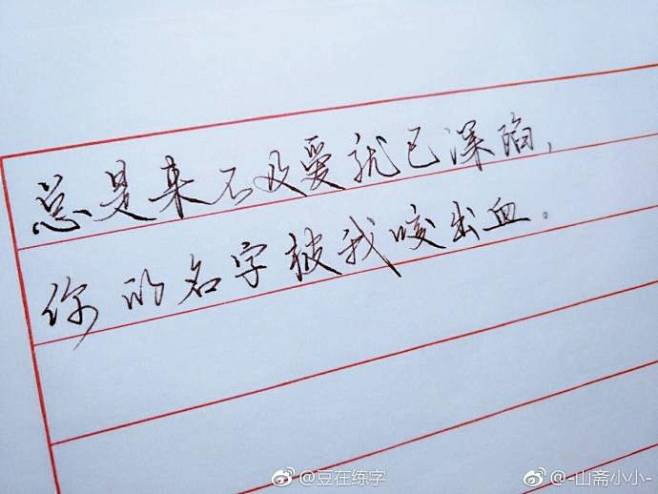 总是来不及爱就已深陷，
你的名字被我咬出血。
@豆在练字
@-山斋小小-